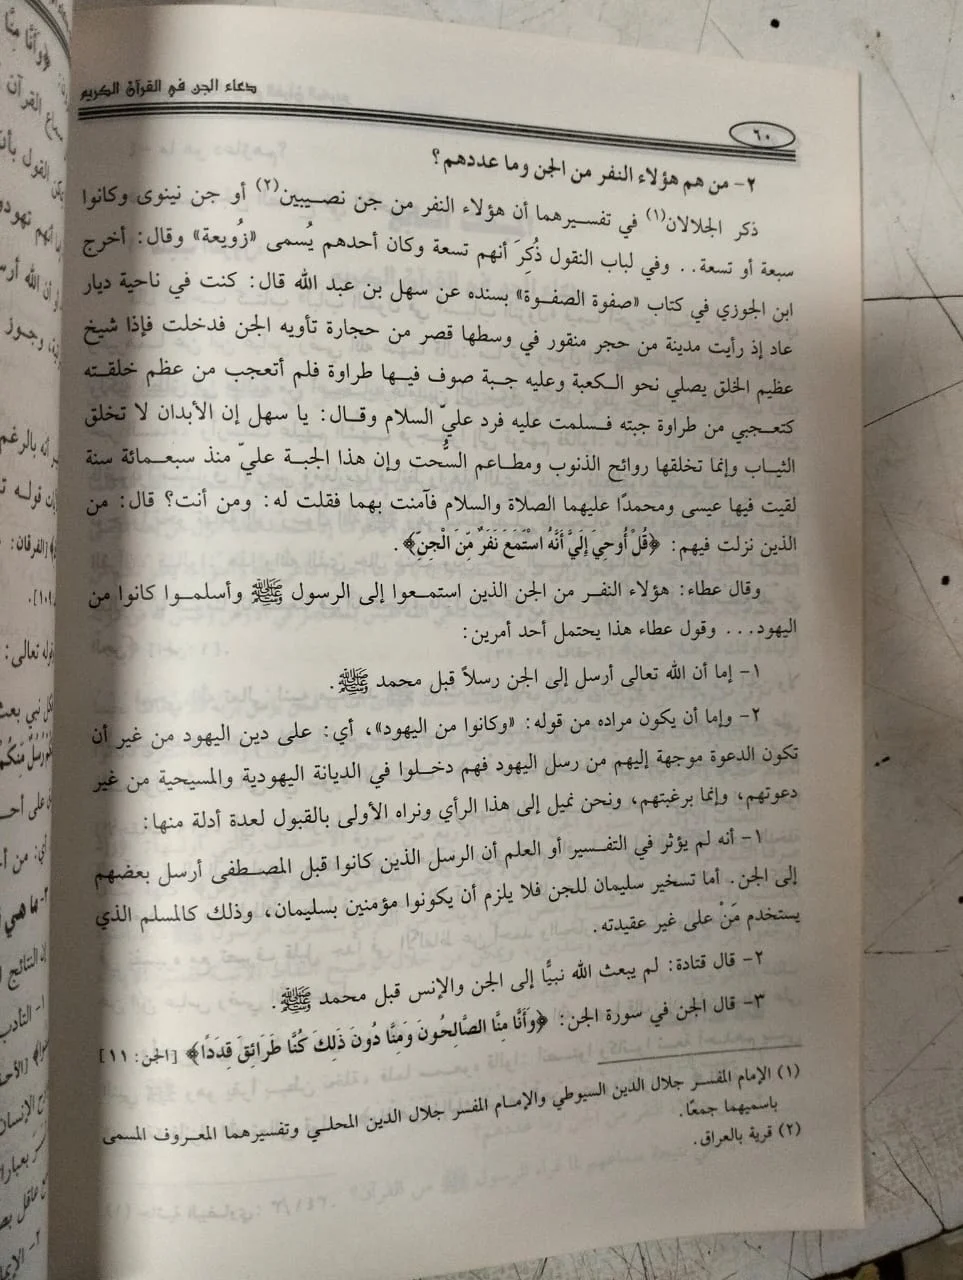 دعاء الجن في القرآن الكريم
٦٠
٢- من هم هؤلاء النفر من الجن وما عددهم؟
ذكر الجلالان(١) في تفسيرهما أن هؤلاء النفر من جن نصيبين(٢) أو جن نينوى وكانوا
سبعة أو تسعة.. وفي لباب النقول ذُكِرَ أنهم تسعة وكان أحدهم يُسمى «زُوبعة» وقال: أخرج
ابن الجوزي في كتاب «صفوة الصفوة» بسنده عن سهل بن عبد الله قال: كنت في ناحية ديار
عاد إذ رأيت مدينة من حجر منقور في وسطها قصر من حجارة تأويه الجن فدخلت فإذا شيخ
عظيم الخلق يصلي نحو الكعبة وعليه جبة صوف فيها طراوة فلم أتعجب من عظم خلقته
كتعجبي من طراوة جبته فسلمت عليه فرد عليّ السلام وقال: يا سهل إن الأبدان لا تخلق
الثياب وإنما تخلقها روائح الذنوب ومطاعم السُّحت وإن هذا الجبة عليّ منذ سبعمائة سنة
لقيت فيها عيسى ومحمدًا عليهما الصلاة والسلام فآمنت بهما فقلت له: ومن أنت؟ قال: من
الذين نزلت فيهم: ﴿قُلْ أُوحِيَ إِلَيَّ أَنَّهُ اسْتَمَعَ نَفَرٌ مِّنَ الْجِنِّ﴾.
وقال عطاء: هؤلاء النفر من الجن الذين استمعوا إلى الرسول ﷺ وأسلموا كانوا من
اليهود... وقول عطاء هذا يحتمل أحد أمرين:
١- إما أن الله تعالى أرسل إلى الجن رسلاً قبل محمد ﷺ.
٢- وإما أن يكون مراده من قوله: «وكانوا من اليهود»، أي: على دين اليهود من غير أن
تكون الدعوة موجهة إليهم من رسل اليهود فهم دخلوا في الديانة اليهودية والمسيحية من غير
دعوتهم، وإنما برغبتهم، ونحن نميل إلى هذا الرأي ونراه الأولى بالقبول لعدة أدلة منها:
١- أنه لم يؤثر في التفسير أو العلم أن الرسل الذين كانوا قبل المصطفى أرسل بعضهم
إلى الجن. أما تسخير سليمان للجن فلا يلزم أن يكونوا مؤمنين بسليمان، وذلك كالمسلم الذي
يستخدم مَنْ على غير عقيدته.
٢- قال قتادة: لم يبعث الله نبيًّا إلى الجن والإنس قبل محمد ﷺ.
٣- قال الجن في سورة الجن: ﴿وَأَنَّا مِنَّا الصَّالِحُونَ وَمِنَّا دُونَ ذَلِكَ كُنَّا طَرَائِقَ قِدَدًا﴾ [الجن: ١١]
(١) الإمام المفسر جلال الدين السيوطي والإمام المفسر جلال الدين المحلي وتفسيرهما المعروف المسمى
باسميهما جمعًا.
(٢) قرية بالعراق.